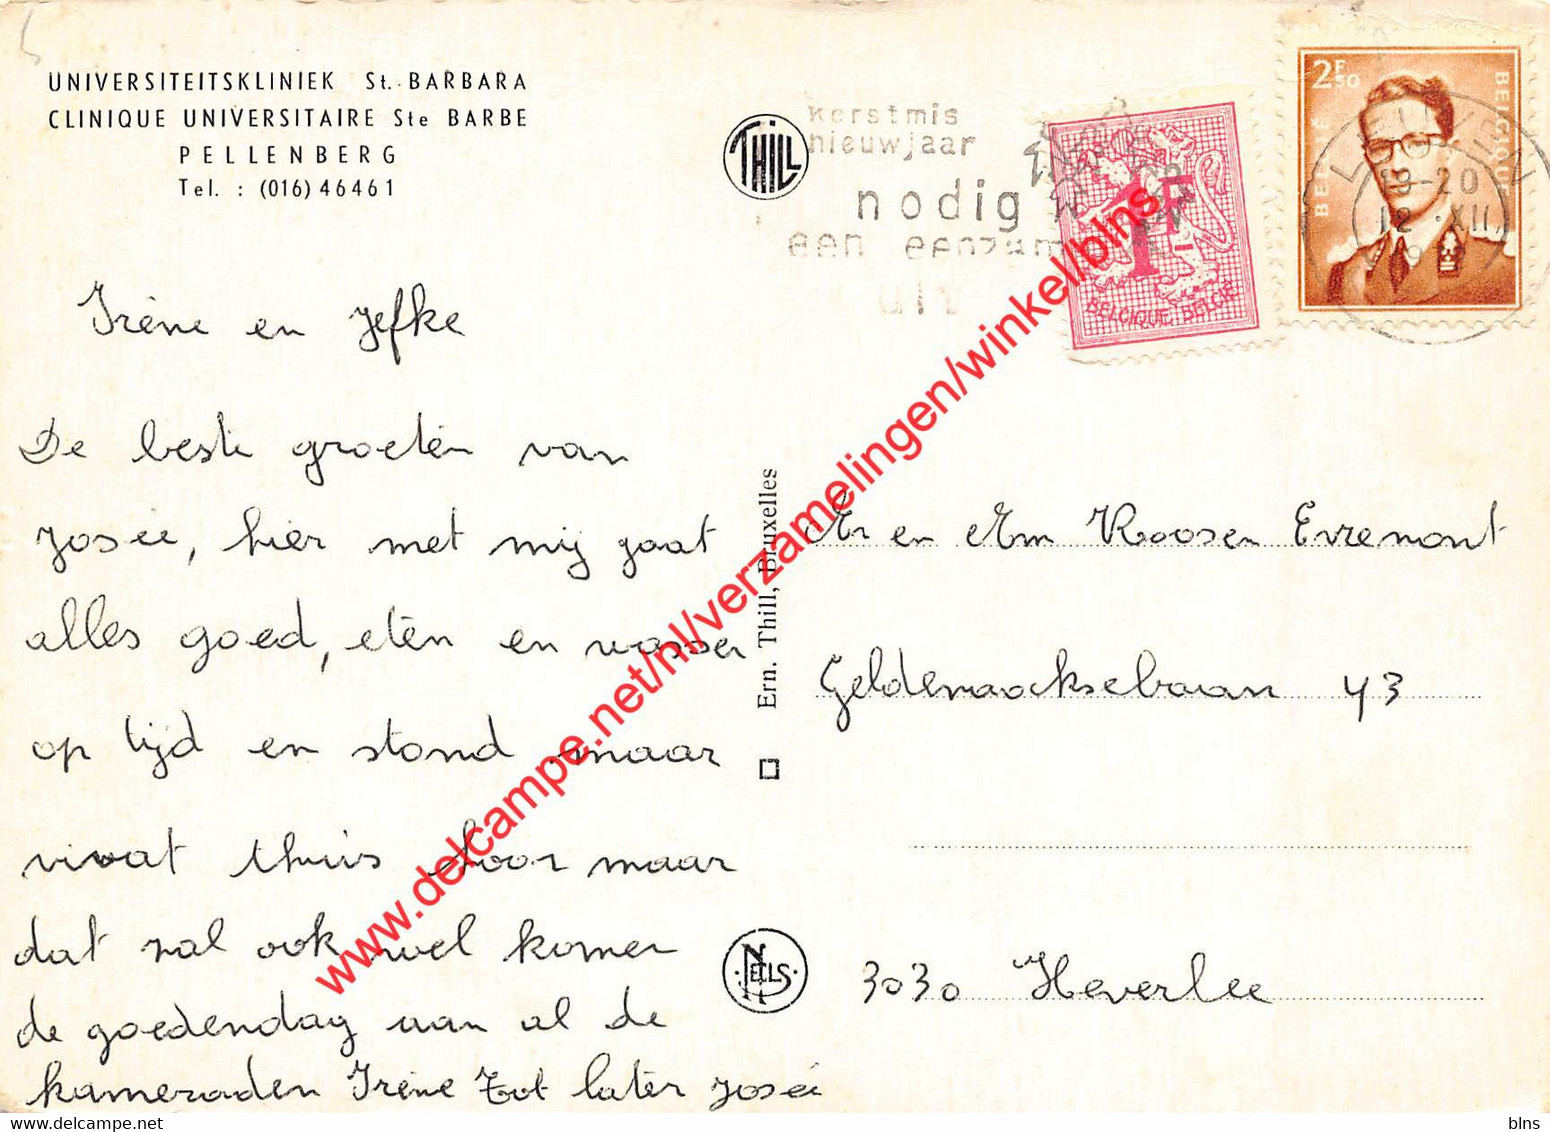 UNIVERSITEITSKLINIEK St. BARBARA
CLINIQUE UNIVERSITAIRE Ste BARBE
PELLENBERG
Tel. : (016) 46461
THILL
Kerstmis
nieuwjaar
nodig
een eenzam
uit
1F
BELGIQUE BELGIE
2F50
BELGIË
BELGIQUE
LEUVEN
19-20
12 XII
Irène en Jefke
De beste groeten van
Josée, hier met mij gaat
alles goed, eten en wassen
op tijd en stond maar
vivat thuis hoor maar
dat zal ook wel komen
de goedendag aan al de
kameraden Irène Tot later Josée
Ern. Thill, Bruxelles
NELLS
Mr en Mm Roosen Evremont
Geldenaaksebaan 43
3030 Heverlee
www.delcampe.net/nl/verzamelingen/winkel/blns
delcampe.net
blns